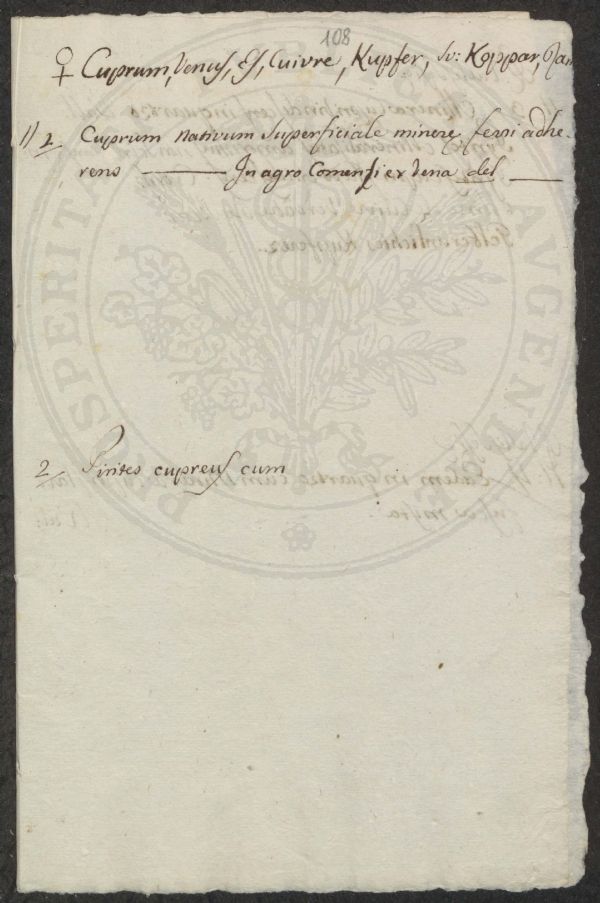 108
♀ Cuprum, Venus, Æs, Cuivre, Kupfer, Sv: Koppar,
1) 2 Cuprum nativum superficiale mineræ ferri adhe-
rens ——— In agro Comensi ex vena del ——
2 Pirites cupreus cum
PROSPERITATI AUGENDAE